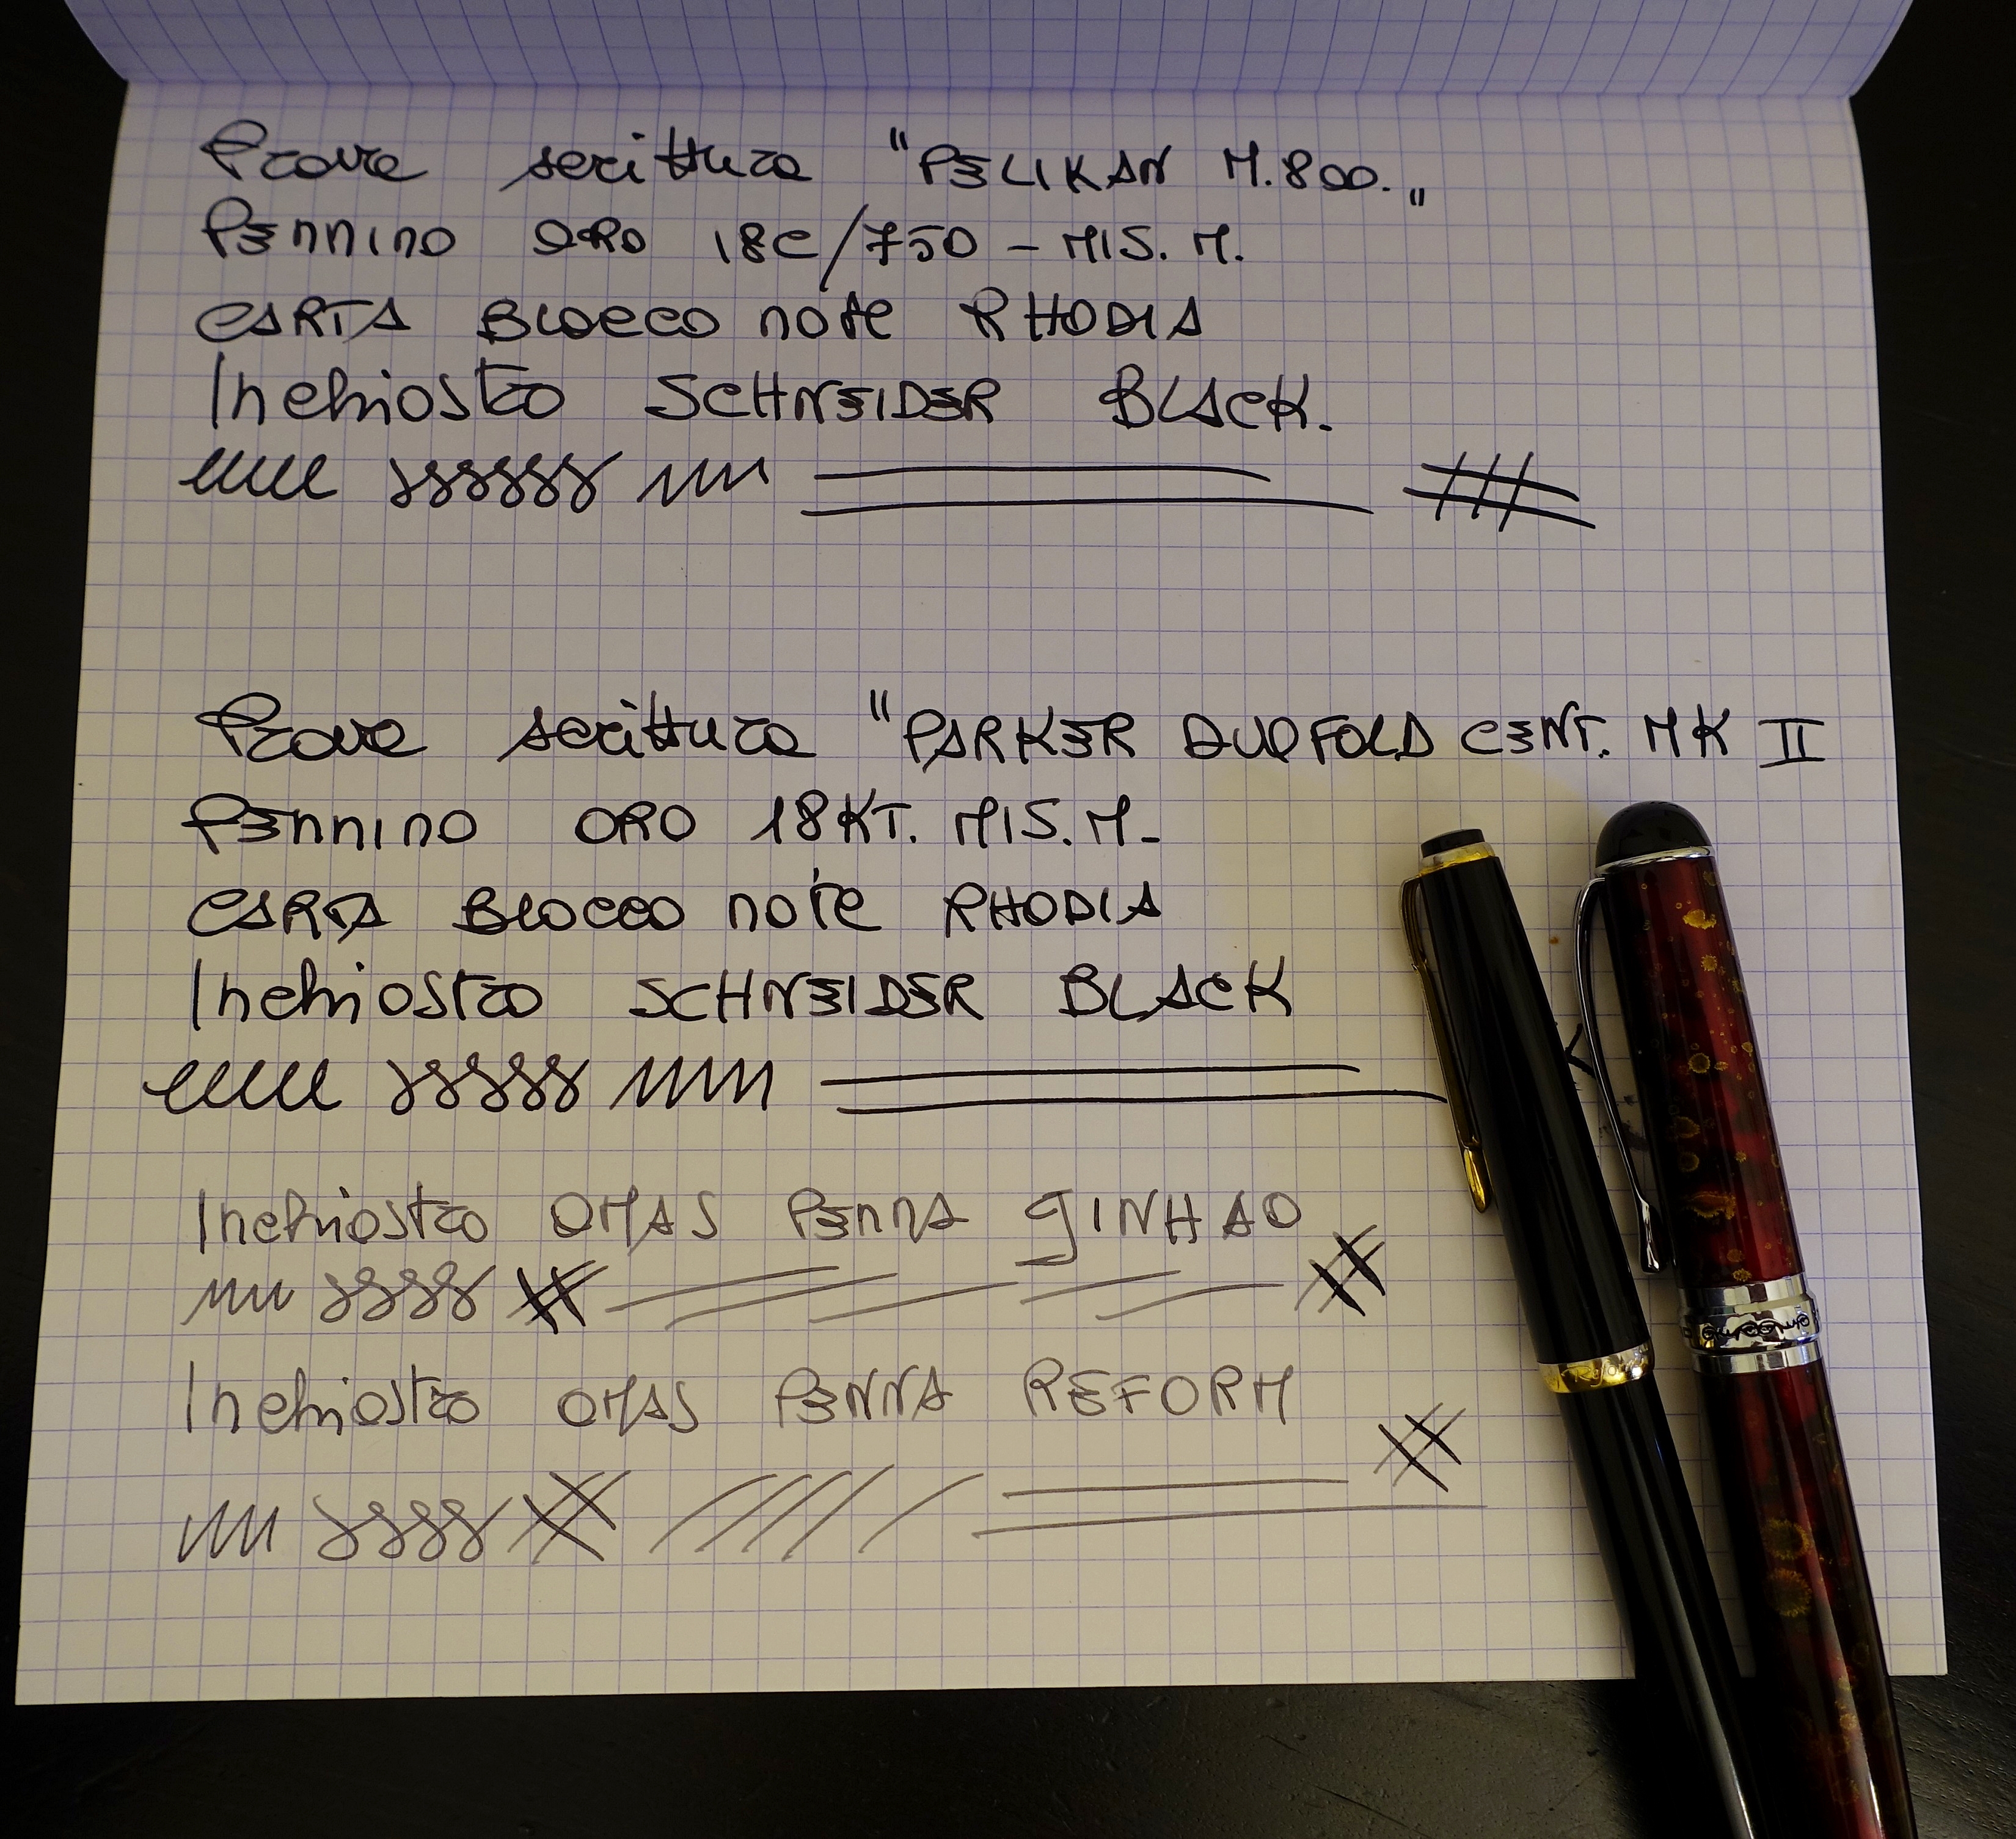 Prove scrittura "PELIKAN M.800."
Pennino ORO 18C/750 - MIS. M.
CARTA BLOCCO note RHODIA
Inchiosto SCHNEIDER BLACK.
Prove scrittura "PARKER DUOFOLD CENT. MK II
Pennino ORO 18KT. MIS. M-
CARTA BLOCCO note RHODIA
Inchiostro SCHNEIDER BLACK
Inchiostro OMAS PENNA JINHAO
Inchiostro OMAS PENNA REFORM